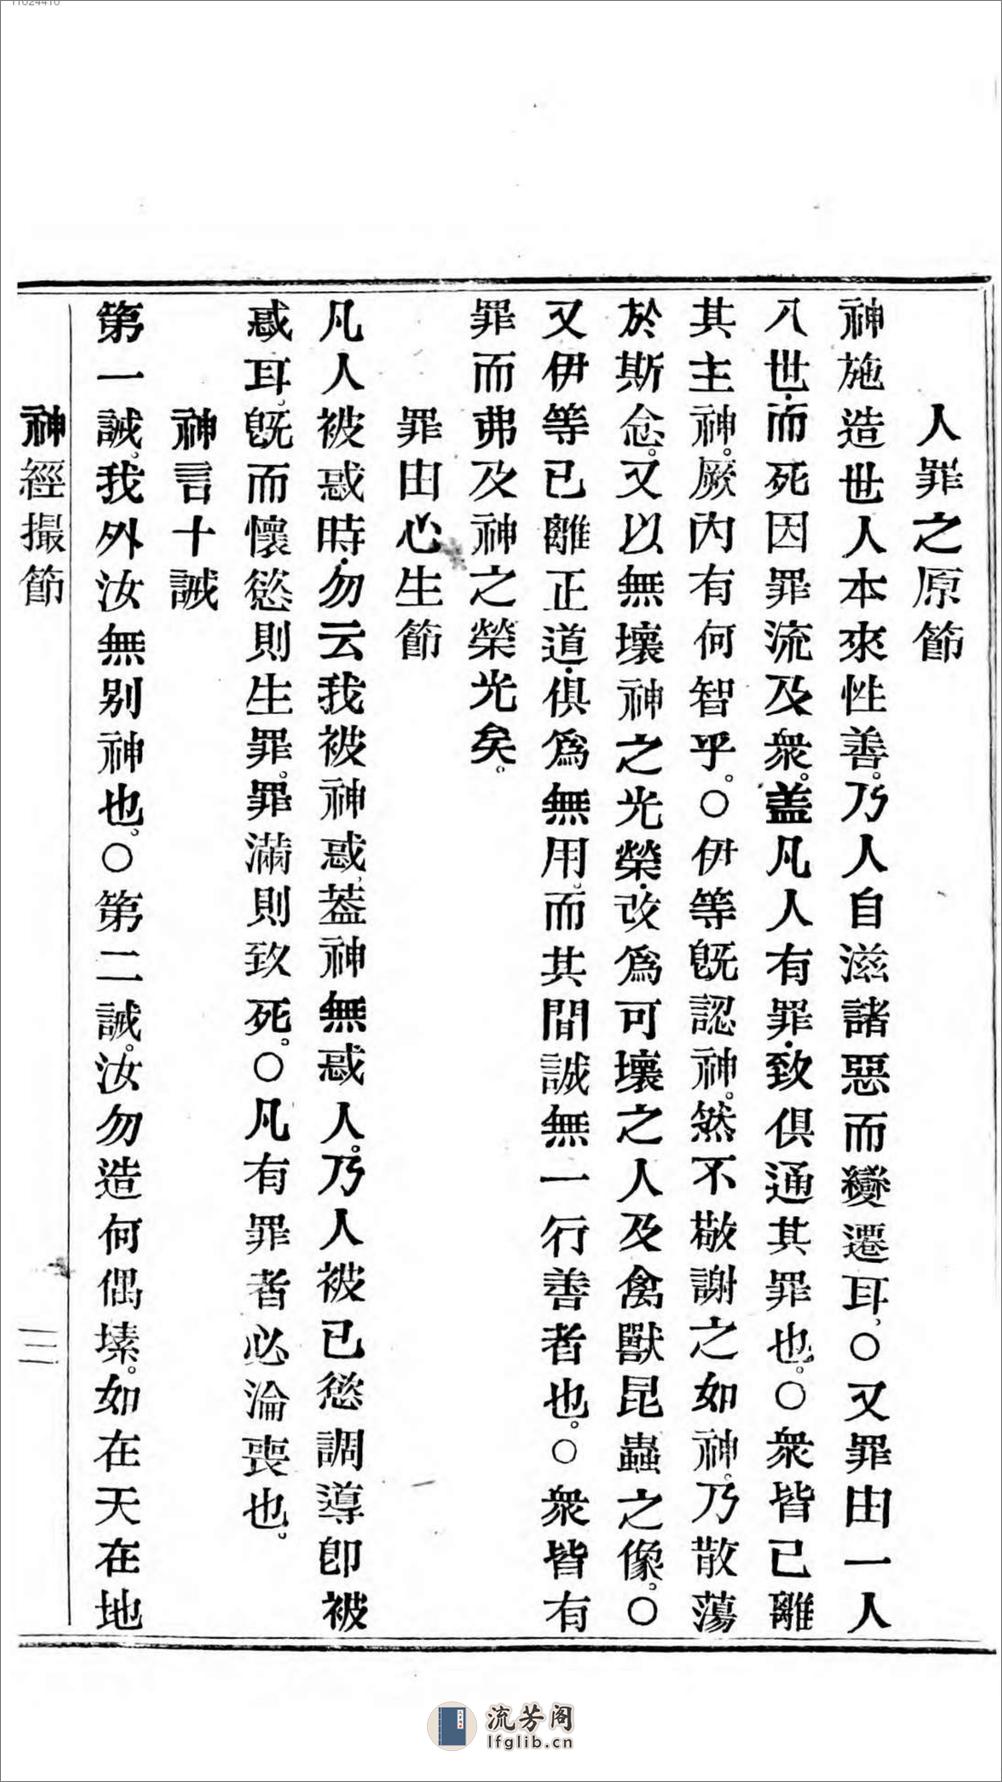 人罪之原節
神施造世人本來性善。乃人自滋諸惡而變遷耳。〇又罪由一人
入世。而死因罪流及衆。蓋凡人有罪。致俱通其罪也。〇衆皆已離
其主神。厥內有何智乎。〇伊等旣認神。然不敬謝之如神。乃散蕩
於斯念。又以無壞神之光榮。改爲可壞之人及禽獸昆蟲之像。〇
又伊等已離正道。俱爲無用。而其間誠無一行善者也。〇衆皆有
罪而弗及神之榮光矣。
罪由心生節
凡人被惑時。勿云我被神惑。葢神無惑人。乃人被已慾調導卽被
惑耳。旣而懷慾則生罪。罪滿則致死。〇凡有罪者必淪喪也。
神言十誡
第一誡。我外汝無別神也。〇第二誡。汝勿造何偶塐。如在天在地
神經撮節
三
流芳阁
lfglib.cn